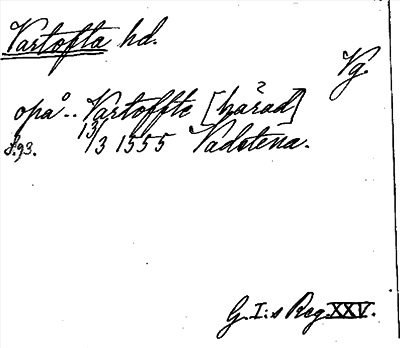 Vartofta hd.
Vg.
opå.. Vartoffte [härad]
s.93. 13/3 1555 Vadstena.
G.I:s Reg. XXV.